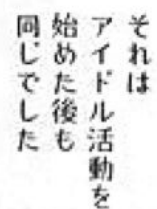 それは
アイドル活動を
始めた後も
同じでした